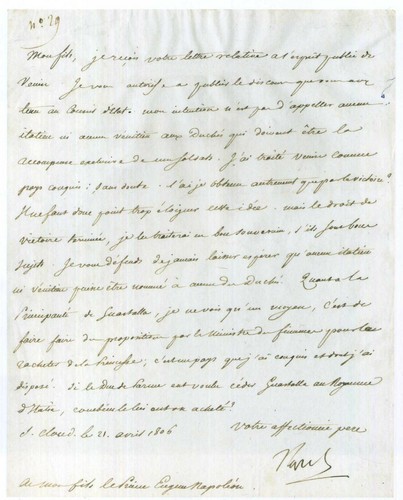 n.° 29
Mon fils, je reçois votre lettre relative à l'esprit public de
Venise. Je vous autorise à publier le discours que vous avez
tenu au Conseil d'État. mon intention n'est pas d'appeller aucun
italien ni aucun vénitien aux Duchés qui doivent être la
récompense exclusive de mes soldats. J'ai traité Venise comme
pays conquis; sans doute. l'ai je obtenu autrement que par la victoire?
Il ne faut donc point trop éloigner cette idée. mais le droit de
victoire terminé, je les traiterai en bon souverain, s'ils sont bons
sujets. Je vous défends de jamais laisser espérer qu'aucun italien
ni vénitien puisse être nommé à aucun des Duchés. Quant à la
Principauté de Guastalla, je ne vois qu'un moyen, c'est de
faire faire des propositions par le Ministre des finances pour la
racheter de la Princesse; c'est un pays que j'ai conquis et dont j'ai
disposé. Si le Duc de Parme eut voulu céder Guastalla au Royaume
d'Italie, combien le lui eut on acheté?
St. Cloud, le 21. avril 1806
Votre affectionné père
à mon fils le Prince Eugène Napoléon